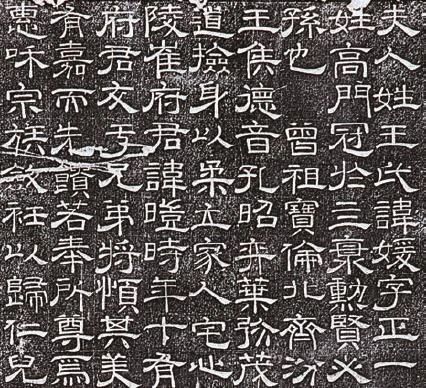 夫人姓王氏諱媛字正一
姓高門冠於三勳賢必
孫也 曾祖寶倫北齊汾
王雋德音孔昭弈葉弥茂
道撿身以柔立家人宅心
陵崔府君諱暟時年十有
府君友于兄弟將慎其美
有嘉而先饋若奉所尊焉
惠咊宗族斂衽以歸仁兒